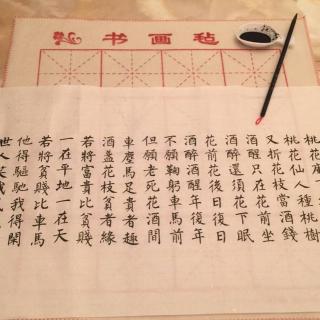 桃花庵
桃花仙人種桃樹
又折花枝當酒錢
酒醒只在花前坐
酒醉還須花下眠
花前花後日復日
酒醉酒醒年復年
不願鞠躬車馬前
但願老死花酒間
車塵馬足貴者趣
酒盞花枝貧者緣
若將富貴比貧賤
一在平地一在天
若將貧賤比車馬
他得驅馳我得閒
世人笑我
书画毡